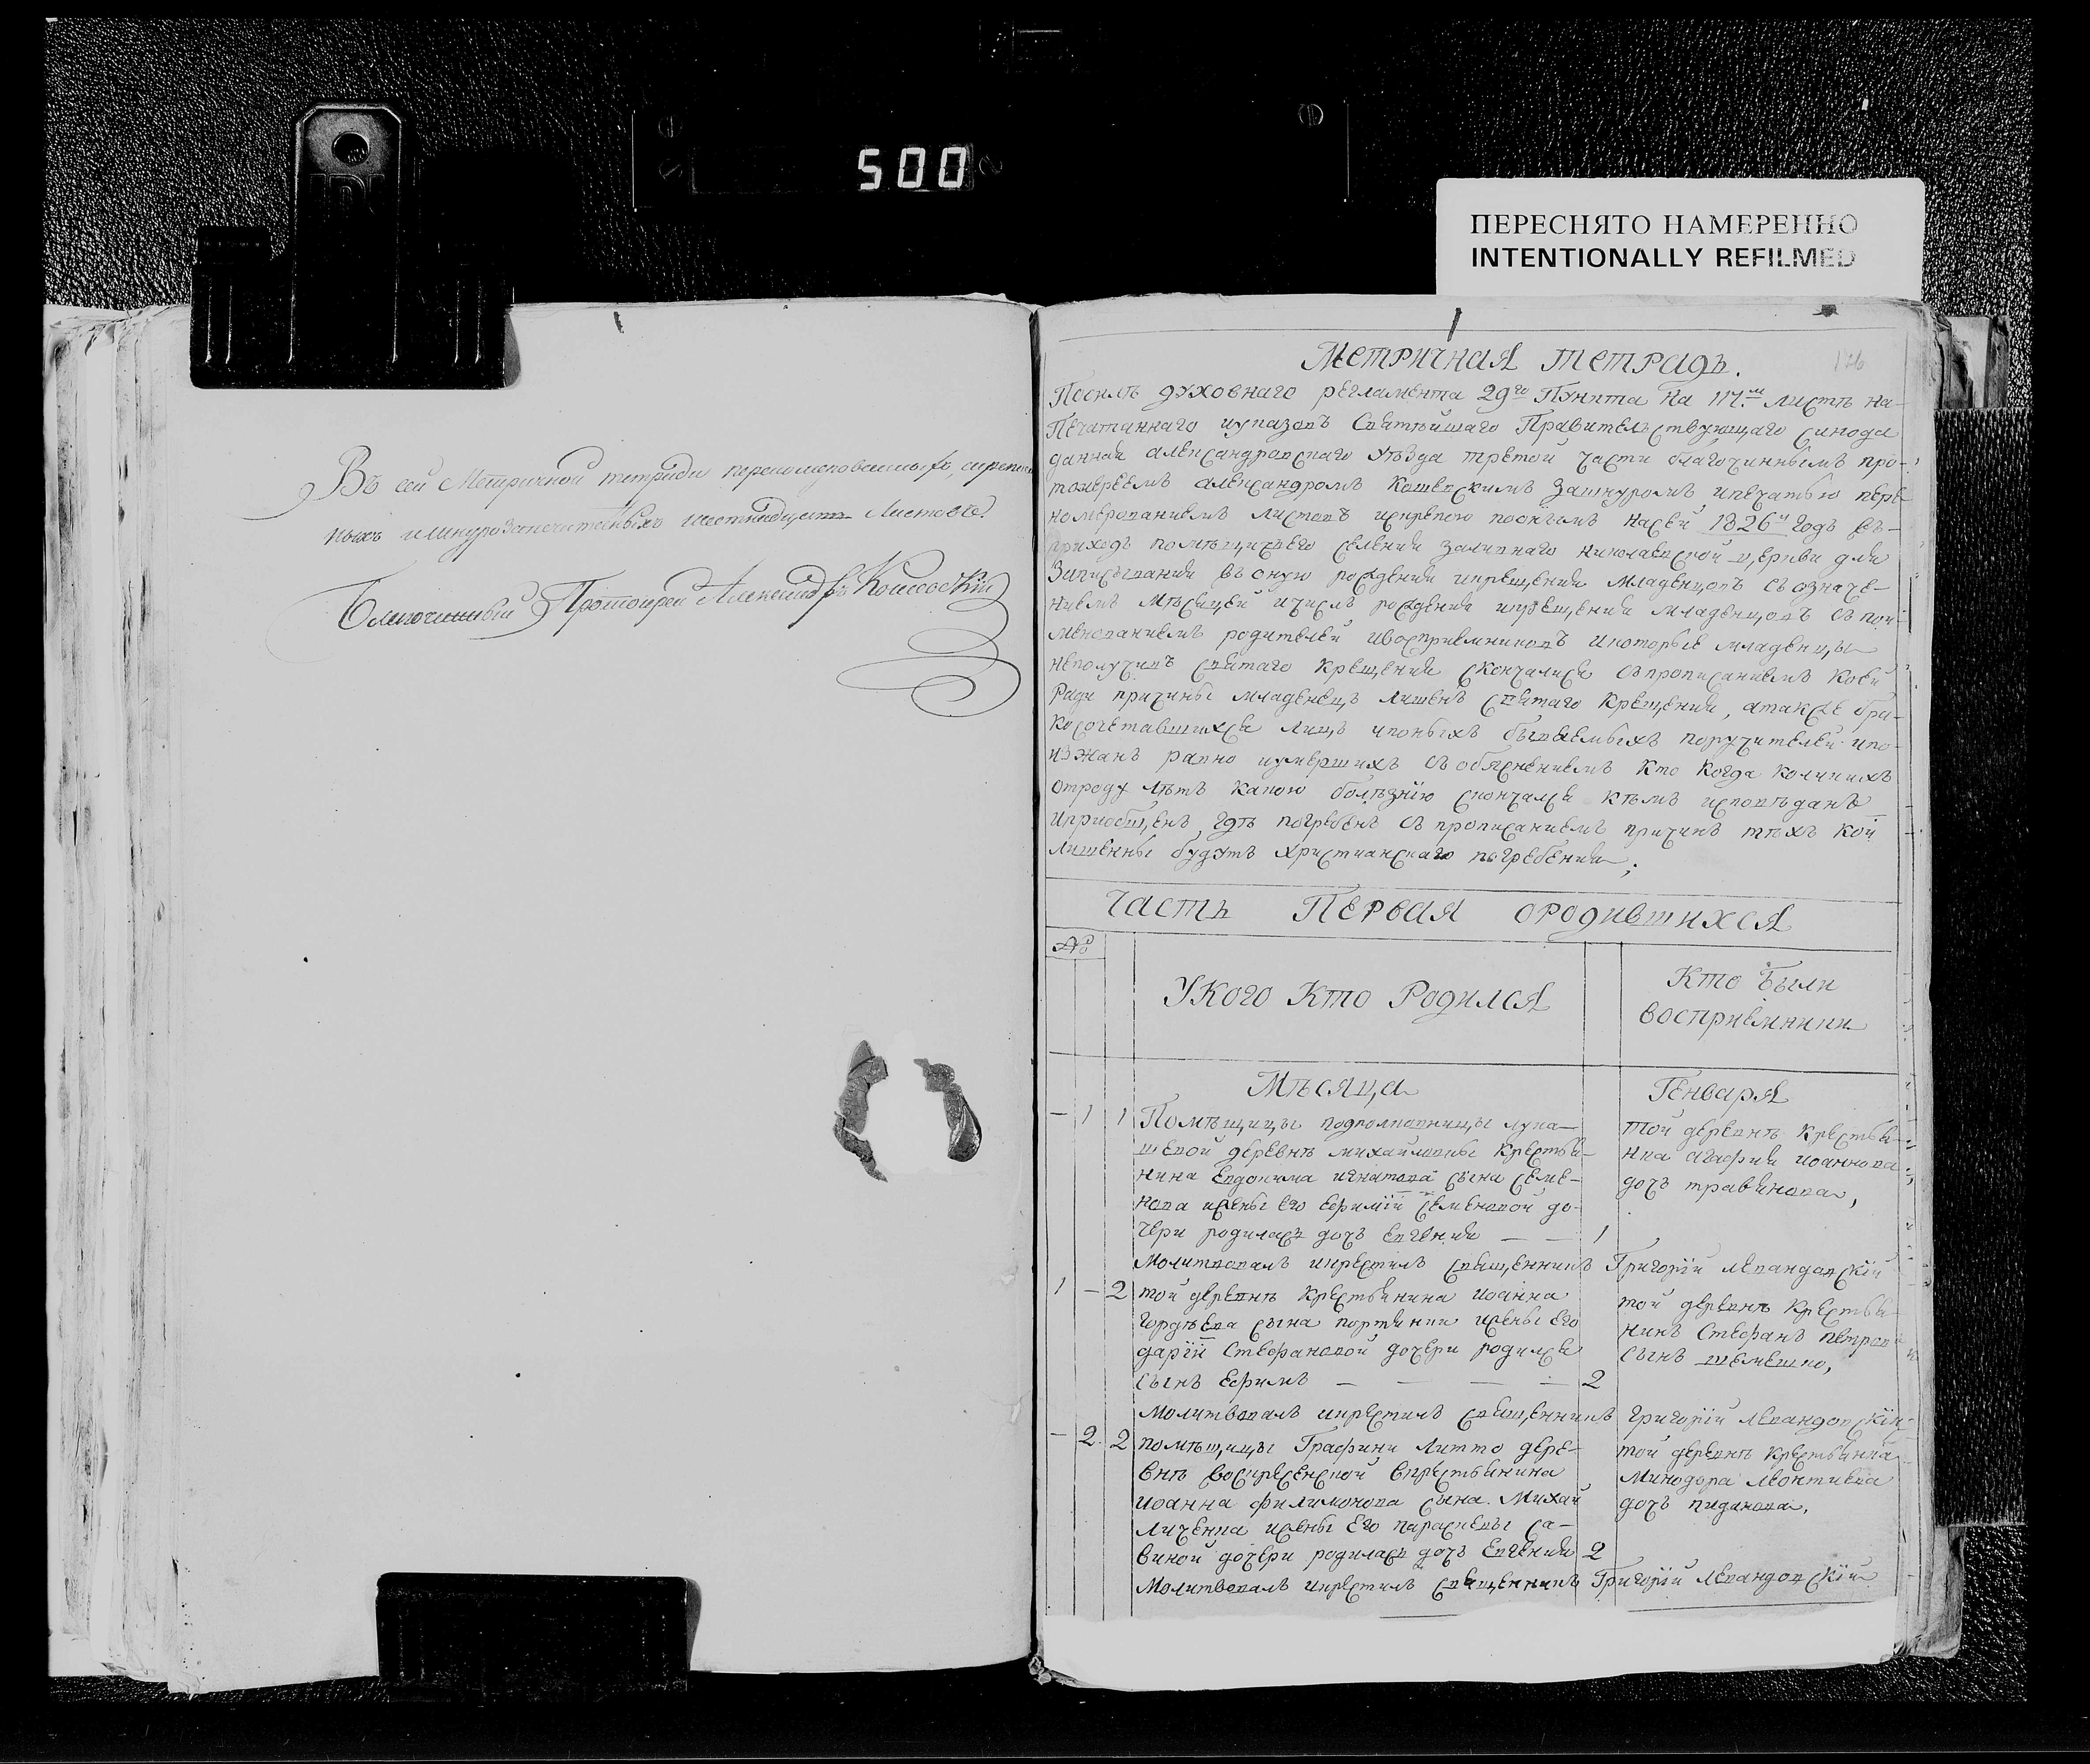 500
ПЕРЕСНЯТО НАМЕРЕННО
INTENTIONALLY REFILMED
Въ сей Метричной тетради перенумерованныхъ, скреплен
ныхъ и шнурозапечатанныхъ шестнадцать Листовъ.
Благочинный Протоиерей Александръ Кошевскій
126
Метричная тетрадь.
Посилѣ духовнаго регламента 29го Пункта на 117.м листѣ на-
печатаннаго иуказовъ Святѣйшаго Правительствующаго синода
данная александровскаго уѣзда третой части благочиннымъ про-
тоиереемъ александромъ Кошевскимъ зашнуромъ, ипечатью пере
номерованиемъ листовъ искрепою посихъмъ насей 1826й годъ въ-
приходъ помѣщичьего селения заливнаго николаевской церкви для
Записывания въ оную рождения икрещения младенцовъ съ означе-
ниемъ мѣсяцей ичислъ рождения икрещения младенцовъ съ пои-
менованиемъ родителей ивосприемниковъ икоторые младенцы
неполучивъ святаго крещения скончалися съпрописаниемъ коей
ради причины младенецъ лишенъ святаго Крещения, атакже бра-
косочетавшихся лицъ ипоныхъ бываемыхъ поручителей ипо-
изжанъ равно иумершихъ съ обясненiемъ кто когда коликихъ
отроду лѣтъ какою болѣзнiю скончался кѣмъ исповѣданъ
иприобщенъ, гдѣ погребенъ съ прописаниемъ причинъ тѣхъ кои
лишенны будутъ христианскаго погребения;
Часть Первая ородившихся
№
Укого Кто Родился
Кто были
восприемники
Мѣсяца
Генваря
1 1 Помѣщицы подполковницы лука-
шевой деревнѣ михайловны крестья-
нина Евдокима игнатова сына семе-
нова жены его ефимiи семеновой до-
чери родилась дочь евгения 1
той деревнѣ крестья-
нка агафия иоаннова
дочь травянова,
Молитвовалъ икрестилъ священникъ Григорiй левандовскiй
1 - 2 той деревнѣ крестьянина иоанна
гордѣева сына портянки жены его
дарiи Стефановой дочери родился
сынъ ефимъ 2
той деревнѣ крестья-
нинъ Стефанъ петров
сынъ шемешко,
Молитвовалъ икрестилъ священникъ григорiй левандовскiй
- 2 2 помѣщицы Графини Литто дере-
внѣ воскресенской крестьянина
иоанна филимонова сына Михай
личенка жены его параскевы са-
виной дочери родилась дочь евгения 2
той деревнѣ крестьянка
Минодора леонтиева
дочь пиданова,
Молитвовалъ икрестилъ священникъ Григорiй левандовскiй